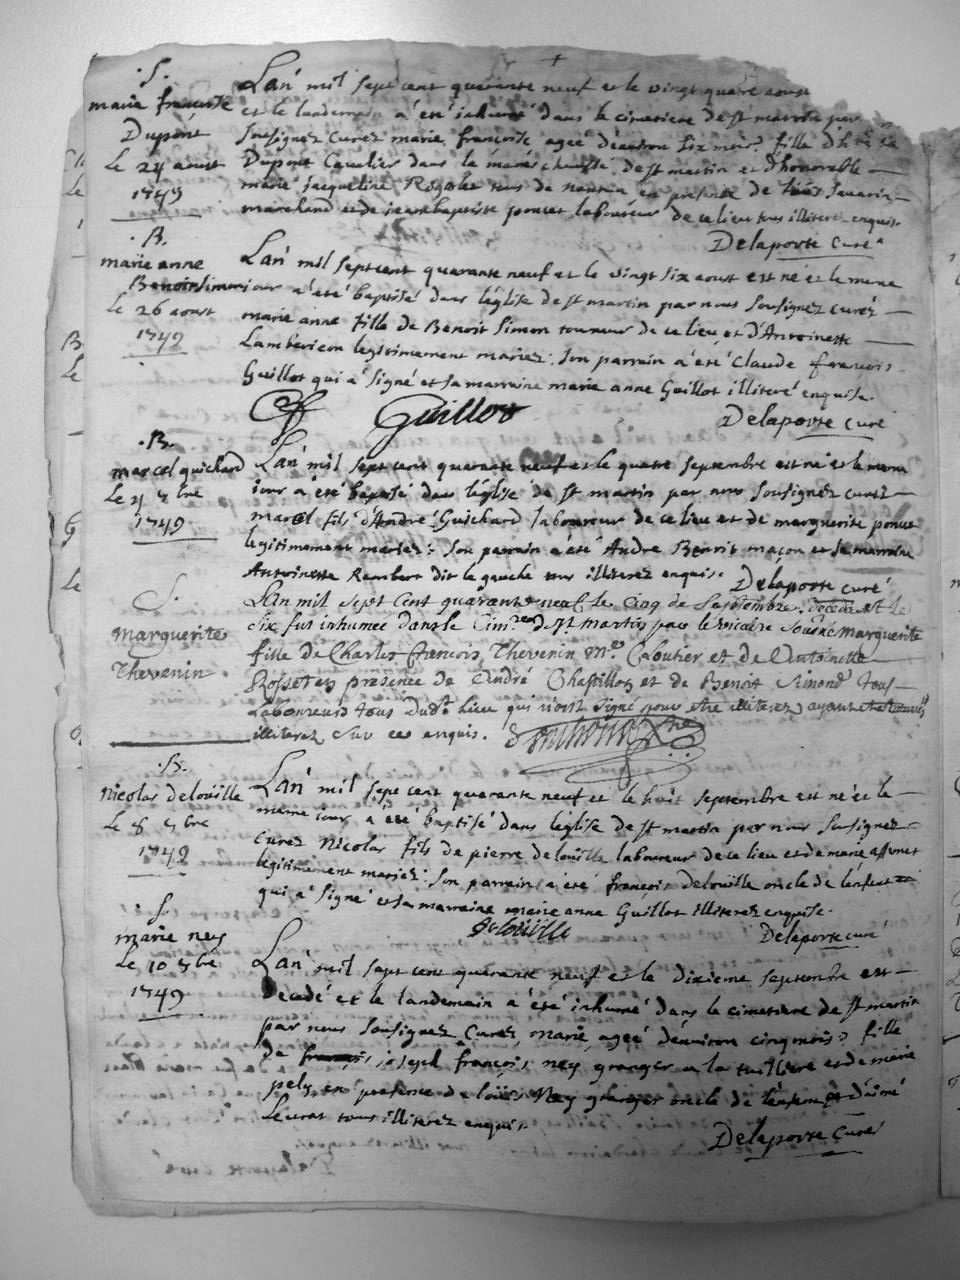 .S.
marie francoise
Dupont
Le 24 aoust
1749
Lan mil sept cent quarante neuf et le vingt quatre aoust
et le landemain a été inhumé dans le cimetiere de st martin par
sousignez curez marie francoise ageé d'environ six mois fille d'h
Dupont Cavalier dans la marechaussé de st martin et d'honorable
marie jacqueline en presence de
marchand et de jean baptiste poncet laboureur de ce lieu tous illiterez enquis.
Delaporte curé
.B.
marie anne
Benoit simon
Le 26 aoust
1749
Lan mil sept cent quarante neuf et le vingt six aoust est né et le meme
iour a été baptisé dans l'église de st martin par nous sousignez curez
marie anne fille de Benoit Simon tourneur de ce lieu et d'Antoinette
Lambericon legitimement mariez: son parrain a été Claude francois
Guillot qui a signé et sa marraine marie anne Guillot illiteré enquise.
Guillot
Delaporte curé
.B.
marcel guichard
Le 4 7bre
1749
Lan mil sept cent quarante neuf et le quatre septembre est né et le meme
iour a été baptisé dans l'église de st martin par nous sousignez curez
marcel fils d'André Guichard laboureur de ce lieu et de marguerite poncet
legitimement mariez: son parrain a été André Benoit maçon et sa marraine
Antoinette Rambert dit le gauche tous illiterez enquis. Delaporte curé
S.
Marguerite
Thevenin
Lan mil sept cent quarante neuf le cinq de septembre decedé et le
six fut inhumée dans le Cim.re de St martin par le vicaire sousné Marguerite
fille de Charles francois Thevenin M.e Cabutier et de Antoinette
Rosset en presence de André Chastillon et de Benoit Simond tous
Laboureurs tous dud.t lieu qui n'ont signé pour etre illiterez ayant eté
illiterez sur ce enquis.
.B.
nicolas delouille
Le 8 7bre
1749
Lan mil sept cent quarante neuf et le huit septembre est né et le
meme iour a été baptisé dans l'église de st martin par nous sousignez
curez Nicolas fils de pierre delouille laboureur de ce lieu et de marie
legitimement mariez: son parrain a été francois Delouille oncle de l'enfent
qui a signé et sa marraine marie anne Guillot illiterez enquise.
delouille
Delaporte curé
.S.
marie ney
Le 10 7bre
1749
Lan mil sept cent quarante neuf et le dixieme septembre est
Decedé et le landemain a été inhumé dans le cimetiere de st martin
par nous sousignez Curez, marie, ageé d'environ cinq mois, fille
de joseph françois ney granger a la tuilliere et de marie
pely en presence de loüis Ney granger oncle de l'enfent et d'aimé
Lecrat tous illiterez enquis.
Delaporte curé